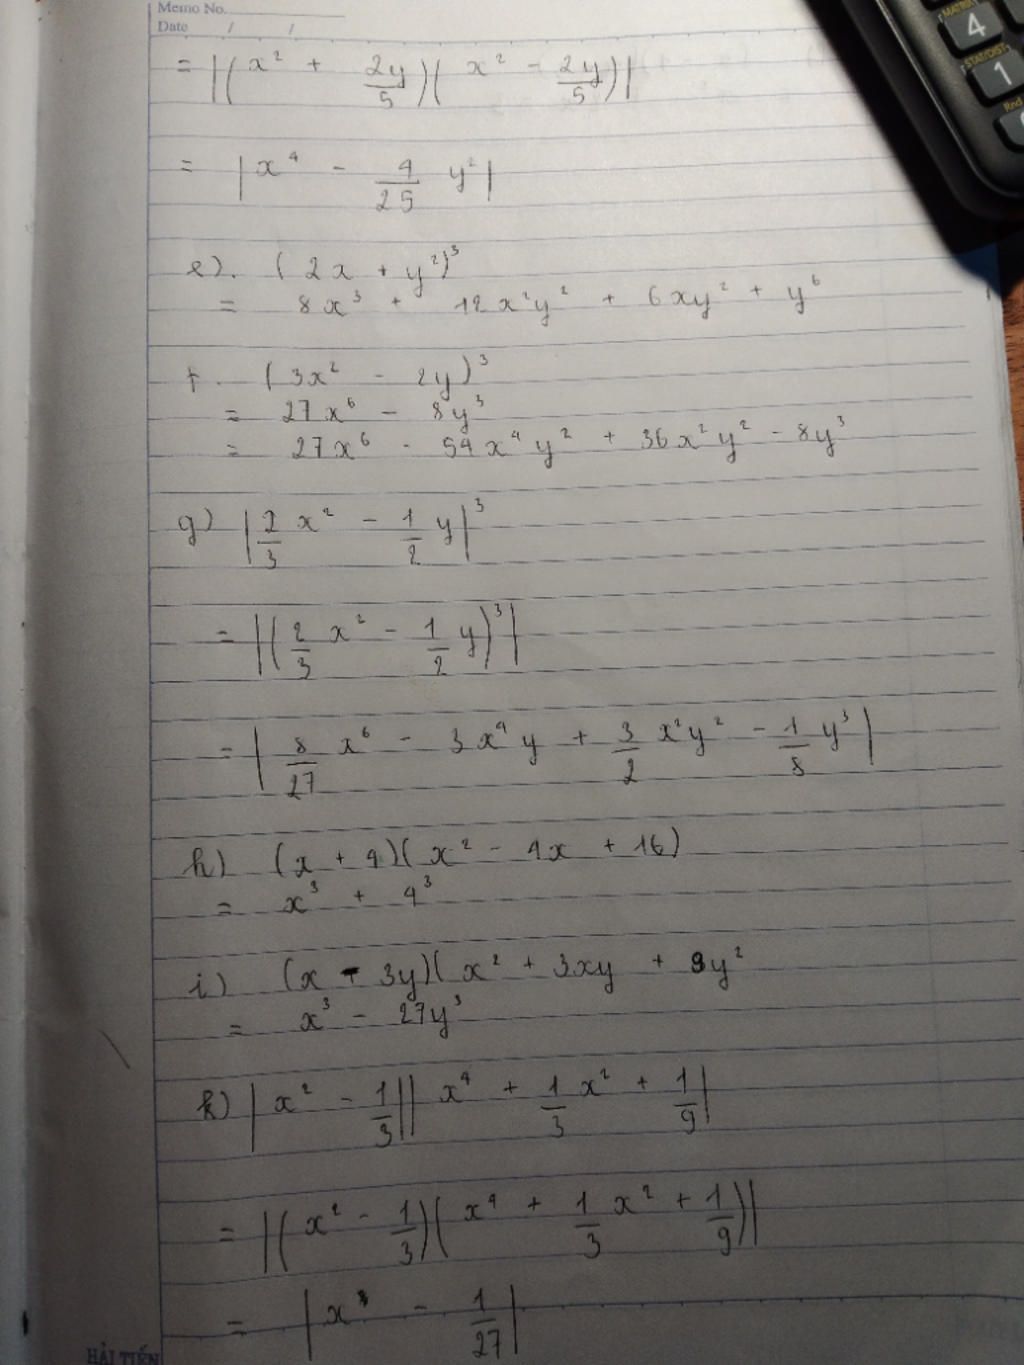 Memo No.
Date / /
= |(x² + 2y/5)(x² - 2y/5)|
= |x⁴ - 4/25 y²|
e). (2x + y²)³
= 8x³ + 12x²y² + 6xy² + y⁶
f. (3x² - 2y)³
= 27x⁶ - 8y³
= 27x⁶ - 54x⁴y² + 36x²y² - 8y³
g) |2/3 x² - 1/2 y|³
= |(2/3 x² - 1/2 y)³|
= |8/27 x⁶ - 3x⁴y + 3/2 x²y² - 1/8 y³|
h) (x + 4)(x² - 4x + 16)
= x³ + 4³
i) (x - 3y)(x² + 3xy + 9y²
= x³ - 27y³
k) |x² - 1/3||x⁴ + 1/3 x² + 1/9|
= |(x² - 1/3)(x⁴ + 1/3 x² + 1/9)|
= |x - 1/27|
HẢI TIẾN
4
1
MATRIX
STAT/DIST
Rnd